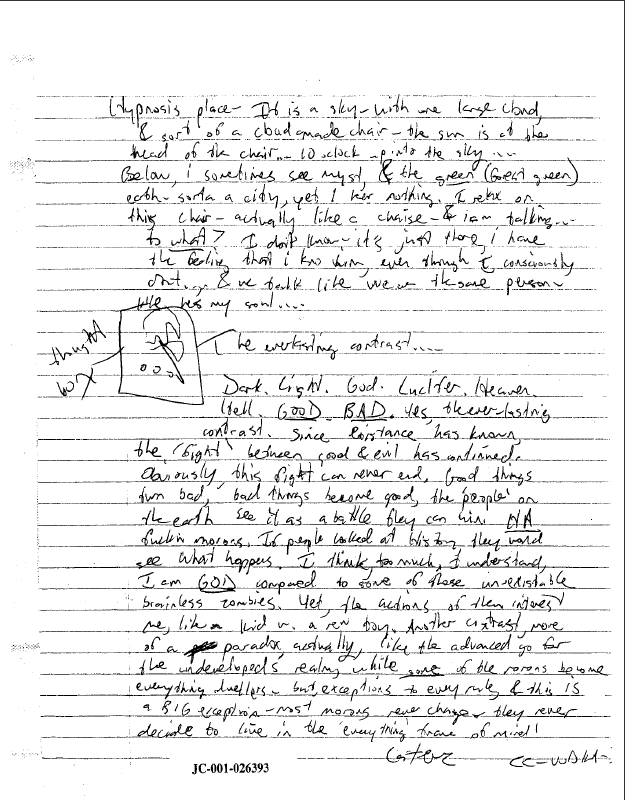 Hypnosis place - It is a sky - with one large cloud,
& sort of a cloud made chair - the sun is at the
head of the chair... 10 oclock - into the sky...
Below, i sometimes see myst, & the green (forest green)
earth - sorta a city, yet I hear nothing. I relax on
this chair - actually like a chaise - & i am talking...
to what? I don't know - it's just there, i have
the feeling that i know him, even though I consciously
dont... & we talk like we are the same person -
like hes my soul....
thought
box
The everlasting contrast.....
Dark. Light. God. Lucifer. Heaven.
Hell. GOOD. BAD. Yes, the ever-lasting
contrast. Since existance has known,
the 'fight' between good & evil has continued.
Obviously, this fight can never end. Good things
turn bad, bad things become good, the 'people' on
the earth see it as a battle they can win. HA
fuckin morons. If people looked at history, they would
see what happens. I think, too much, I understand,
I am GOD compared to some of those
brainless zombies. Yet, the actions of them interest
me, like a kid w. a new toy. Another contrast, more
of a paradox, actually, like the advanced go for
the undeveloped's realm, while some of the morons become
everything dwellers - but, exceptions to every rule, & this IS
a BIG exception - most morons never change, they never
decide to live in the 'everything' frame of mind!
JC-001-026393